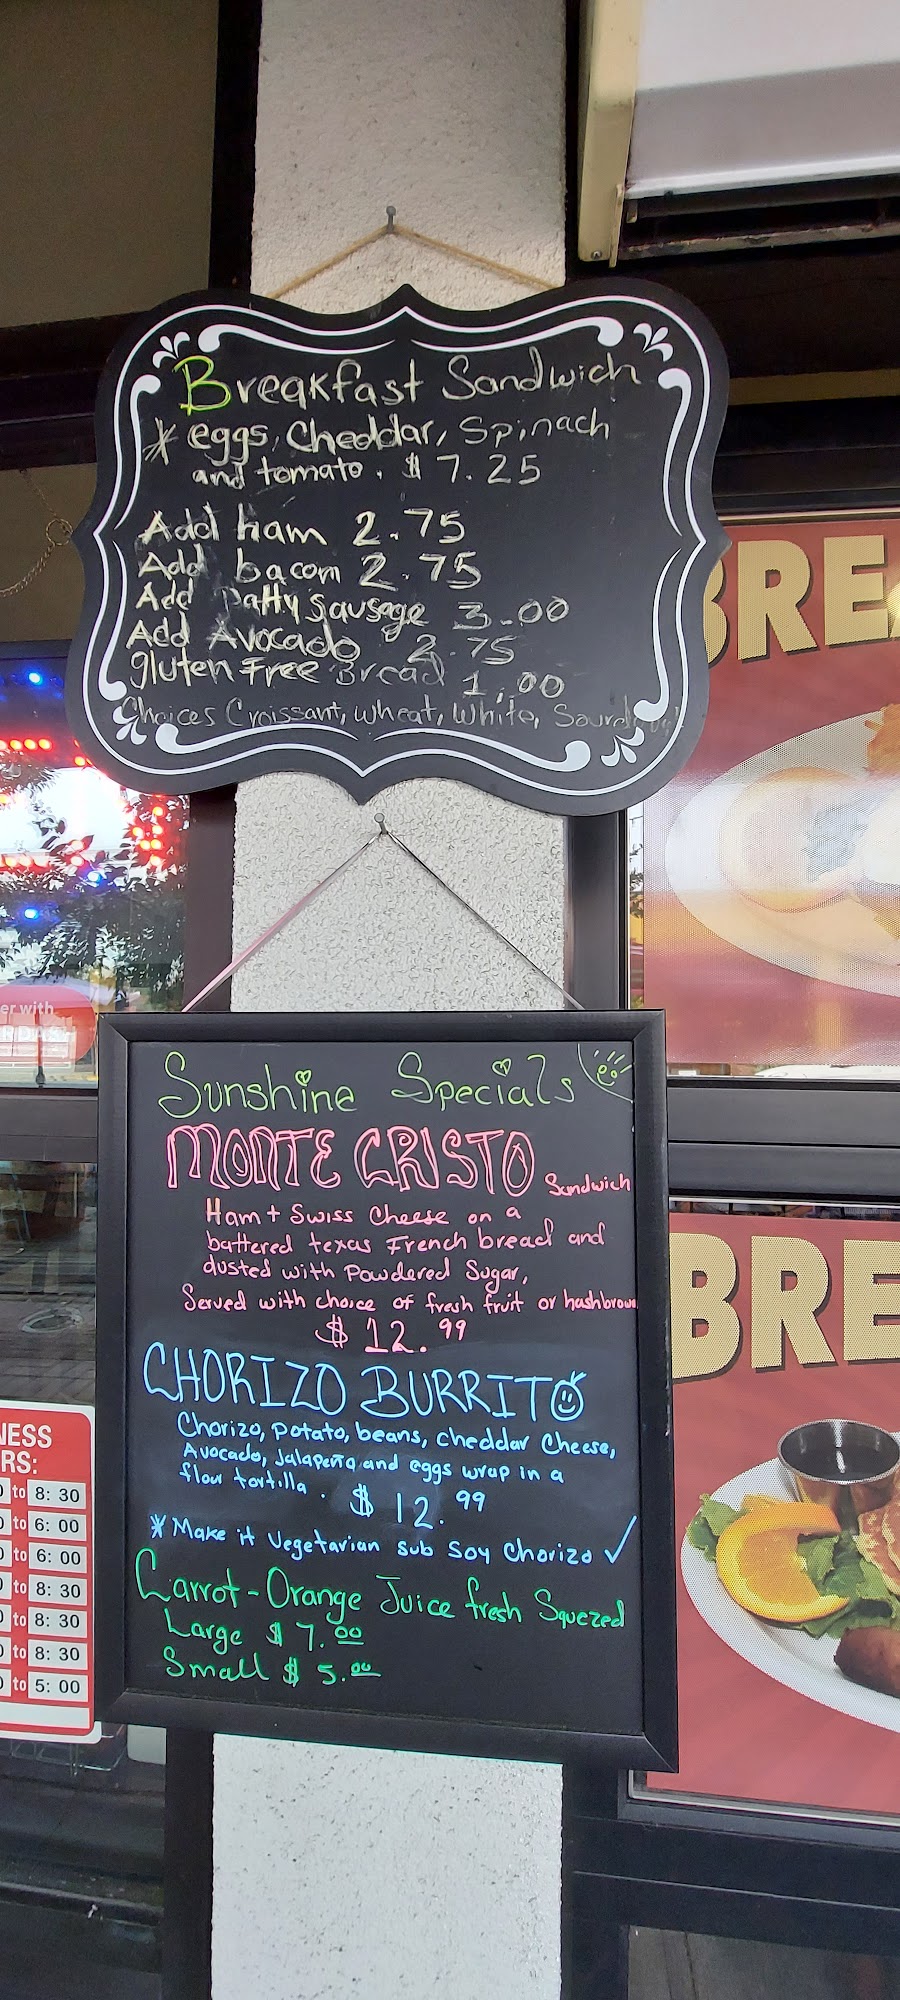 Breakfast Sandwich
* eggs, Cheddar, Spinach
and tomato. $ 7.25
Add ham 2.75
Add bacon 2.75
Add Patty Sausage 3.00
Add Avocado 2.75
gluten Free Bread 1.00
Choices Croissant, wheat, White, Sourdough
er with
Sunshine Specials
MONTE CRISTO Sandwich
Ham + Swiss Cheese on a
battered texas French bread and
dusted with Powdered Sugar,
Served with choice of fresh fruit or hashbrown
$ 12.99
CHORIZO BURRITO
Chorizo, potato, beans, cheddar Cheese,
Avocado, Jalapeña and eggs wrap in a
flour tortilla. $ 12.99
* Make it Vegetarian sub Soy Chorizo ✓
Carrot-Orange Juice fresh Squezed
Large $ 7.00
Small $ 5.00
NESS
RS:
0 to 8: 30
0 to 6: 00
0 to 6: 00
0 to 8: 30
0 to 8: 30
0 to 8: 30
0 to 5: 00
BREA
BRE